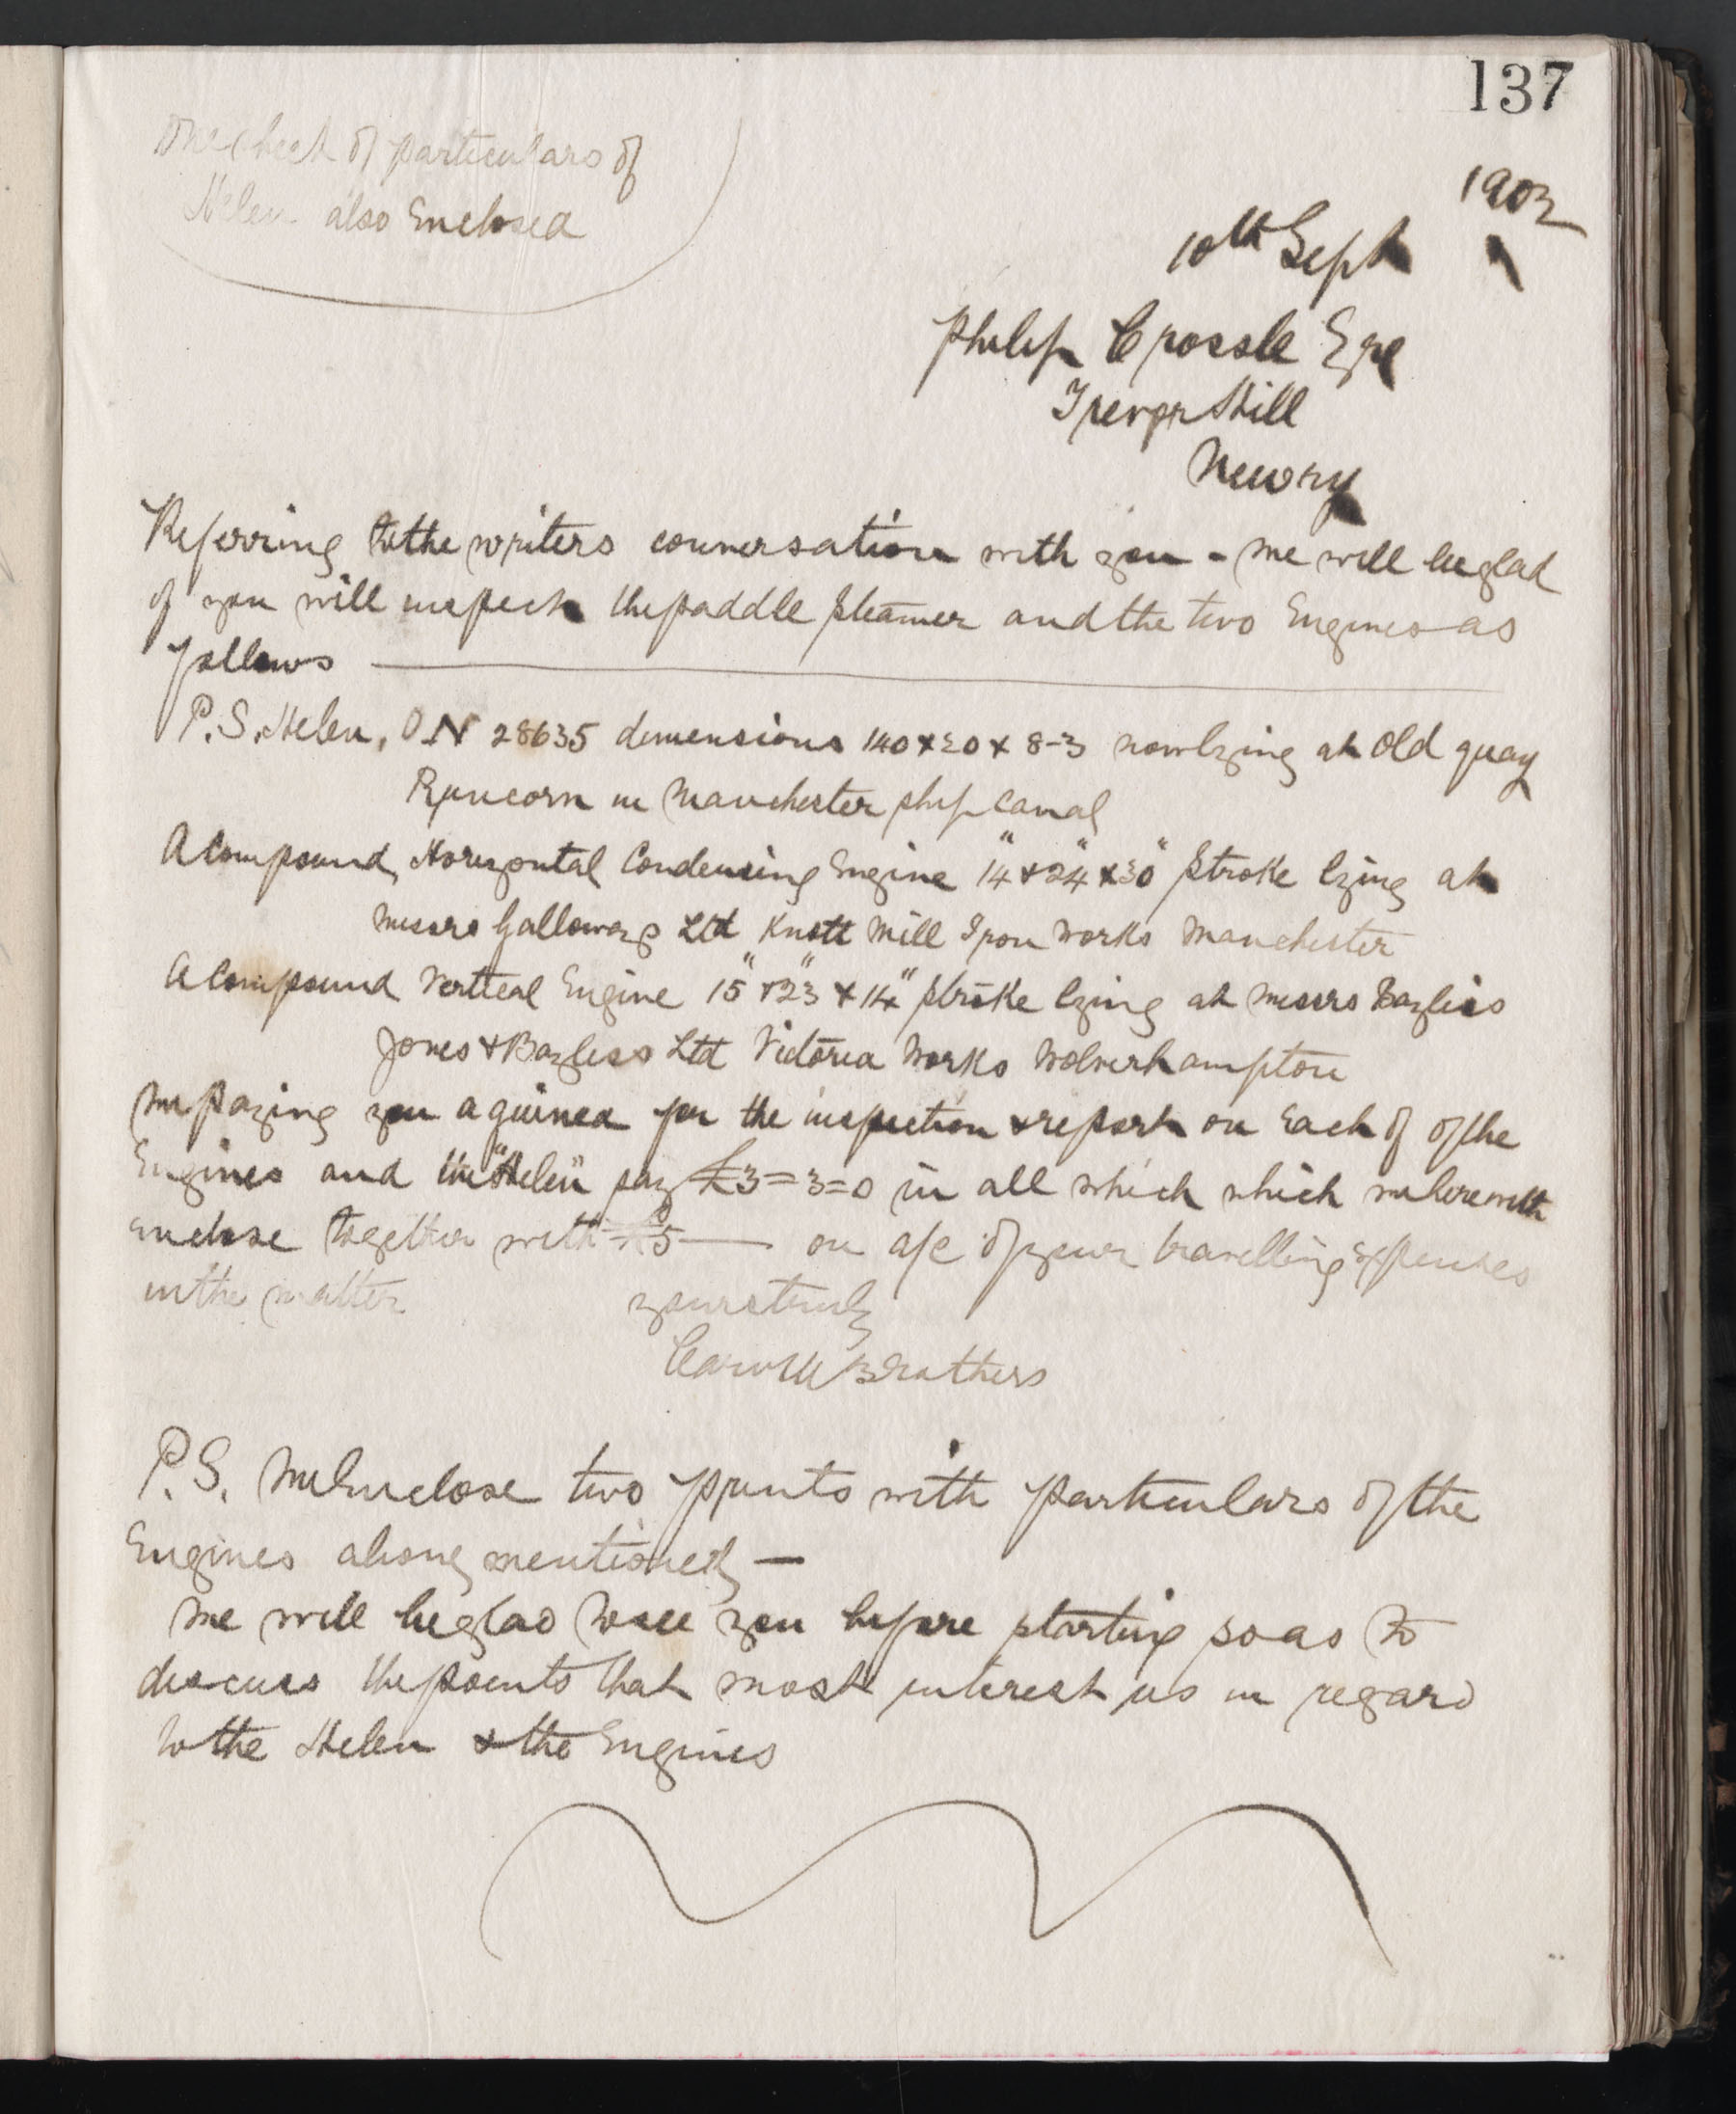 137
One sheet of particulars of
Helen also Enclosed
1903
10th Sept
Philip Crossle Esqe
Trevor Hill
Newry
Referring to the writers conversation with you - we will be glad
if you will inspect the paddle steamer and the two Engines as
follows
P.S. Helen, O.N 28635 dimensions 140 x 20 x 8-3 now lying at Old quay
Runcorn in Manchester ship Canal
A Compound, Horizontal Condensing Engine 14" x 24" x 30" stroke lying at
Messrs Galloways Ltd Knott Mill Iron Works Manchester
A Compound Vertical Engine 15" x 23" x 14" stroke lying at Messrs Bayliss
Jones & Bayliss Ltd Victoria Works Wolverhampton
We paying you a guinea for the inspection & report on Each of of the
Engines and the "Helen" say £3=3=0 in all which which we herewith
enclose together with £5 — on a/c of your travelling Expenses
in the matter
yours truly
Carvill Brothers
P.S. We Enclose two prints with particulars of the
Engines above mentioned —
We will be glad to see you before starting so as to
discuss the points that most interest us in regard
to the Helen & the Engines